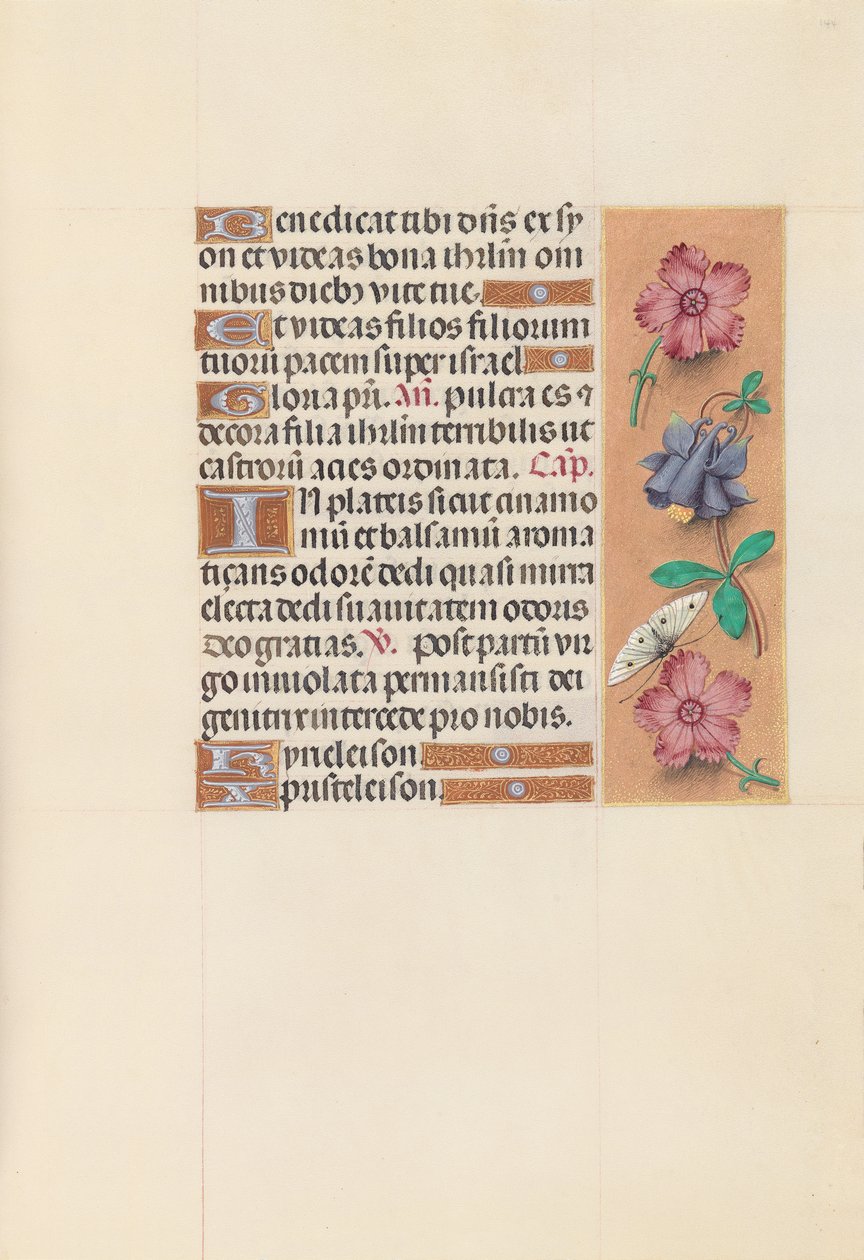 144
Benedicat tibi dñs ex sy
on et videas bona ihrl̃m om
nibus dieb⁹ vite tue.
Et videas filios filiorum
tuorũ pacem super israel
Gloria pr̃i. Añ. pulcra es ⁊
decora filia ihrl̃m terribilis ut
castrorũ acies ordinata. Cap̃.
IN plateis sicut cinamo
mũ et balsamũ aroma
ticans odorẽ dedi quasi mirra
electa dedi suavitatem odoris
deo gratias. V̉. post partũ vir
go inviolata permansisti dei
genitrix intercede pro nobis.
Kyrieleison.
Xpristeleison.